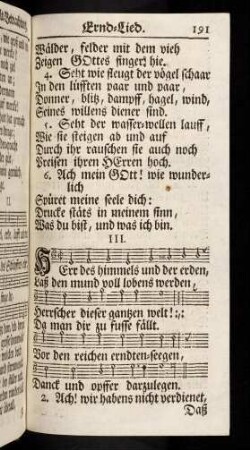 Ernd-Lied. 191
Wälder, felder mit dem vieh
Zeigen GOttes finger hie.
4. Seht wie fleugt der vögel schaar
In den lüfften paar und paar,
Donner, blitz, dampff, hagel, wind,
Seines willens diener sind.
5. Seht der wasser-wellen lauff,
Wie sie steigen ab und auff
Durch ihr rauschen sie auch noch
Preisen ihren HErren hoch.
6. Ach mein GOtt! wie wunder-
lich
Spüret meine seele dich:
Drucke stäts in meinem sinn,
Was du bist, und was ich bin.
III.
HErr des himmels und der erden,
Laß den mund voll lobens werden,
Herrscher dieser gantzen welt!:,:
Da man dir zu fusse fällt.
Vor den reichen erndten-seegen,
Danck und opffer darzulegen.
2. Ach! wir habens nicht verdienet,
Daß